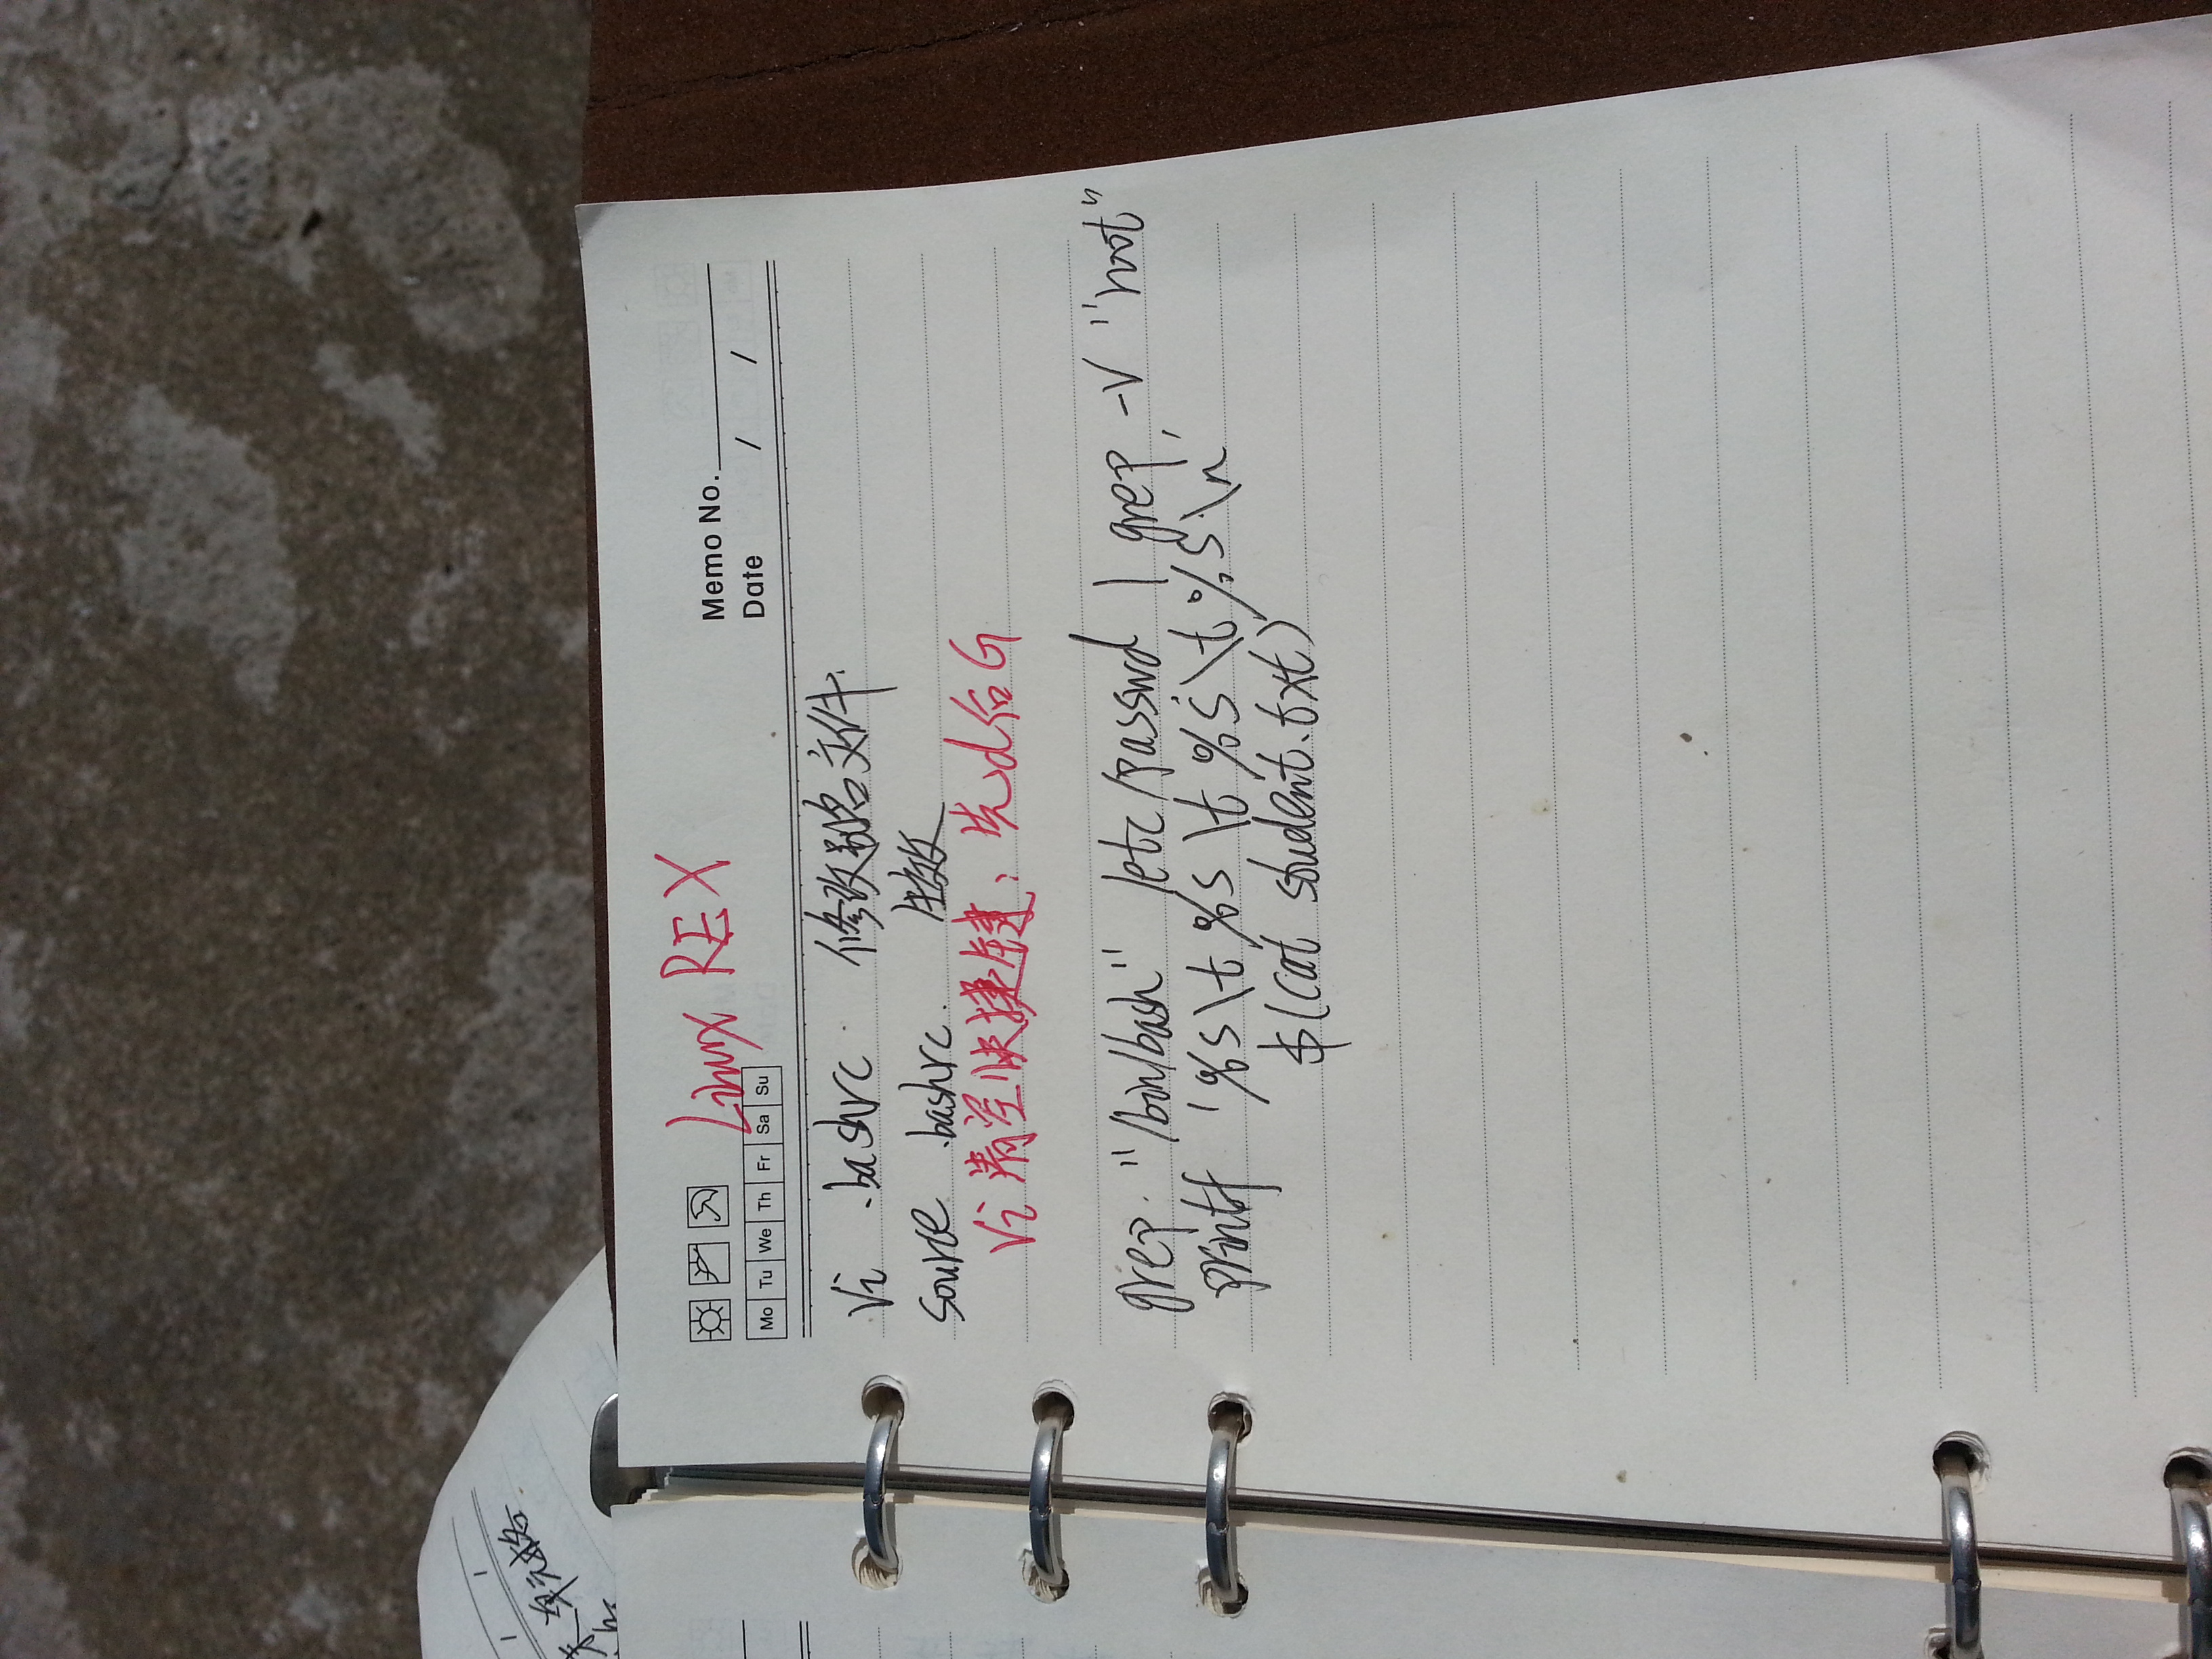 末单元格
Linux REX
Memo No.
Mo Tu We Th Fr Sa Su
Date / /
vi .bashrc 修改别名文件.
source .bashrc. 生效
vi 清空快捷键: 先d后G
grep "/bin/bash" /etc/passwd | grep -v "root"
printf '%s\t %s \t %s\t %s\n'
$(cat student.txt)